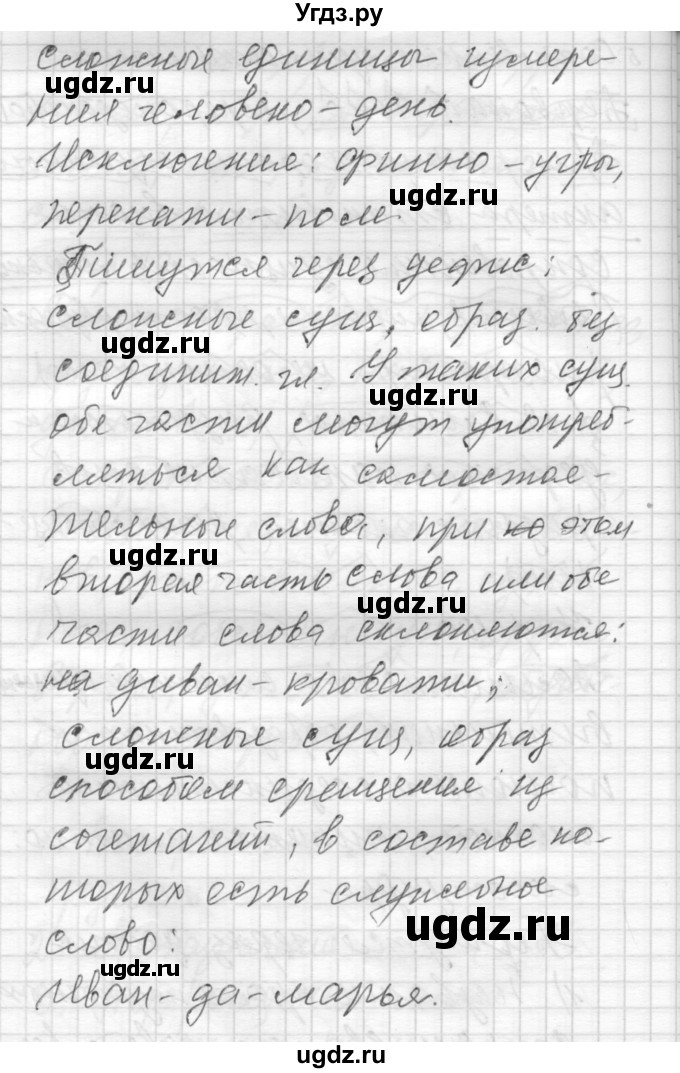 Угдз.ру
сложные единицы измере-
ugdz.ru
ния человеко-день.
Исключения: финно-угры,
ugdz.ru
перекати-поле.
Пишутся через дефис:
сложные сущ., образ. без
ugdz.ru
соединит. гл. У таких сущ.
ugdz.ru
обе части могут употреб-
ляться как самостоя-
тельные слова, при этом
ugdz.ru
вторая часть слова или обе
ugdz.ru
части слова склоняются:
на диван-кровати;
сложные сущ., образ
ugdz.ru
способом сращения из
сочетаний, в составе ко-
торых есть служебное
ugdz.ru
слово:
ugdz.ru
Иван-да-марья.
ugdz.ru